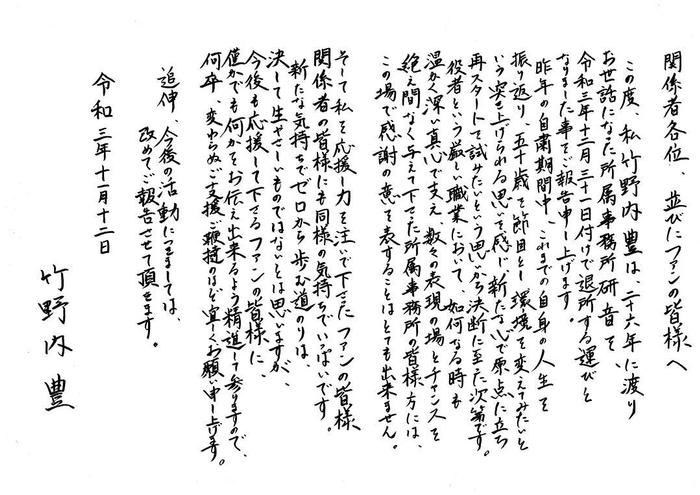 関係者各位、並びにファンの皆様へ
この度、私竹野内豊は、二十六年に渡り
お世話になった所属事務所研音を
令和三年十二月三十一日付けで退所する運びと
なりました事をご報告申し上げます。
昨年の自粛期間中、これまでの自身の人生を
振り返り、五十歳を節目とし環境を変えてみたいと
いう突き上げられる思いを感じ、新たな心で原点に立ち
再スタートで試みたいという思いから決断に至た次第です。
役者という厳しい職業において、如何なる時も
温かく深い真心で支え、数々の表現の場とチャンスを
絶え間なく与えて下さった所属事務所の皆様方には、
この場で感謝の意を表することはとても出来ません。
そして私を応援し力を注いで下さったファンの皆様、
関係者の皆様にも同様の気持ちでいっぱいです。
新たな気持ちでゼロから歩む道のりは、
決して生やさしいものではないとは思いますが、
今後も応援して下さるファンの皆様に、
僅かでも何かをお伝え出来るよう精進して参りますので、
何卒、変わらぬご支援ご鞭撻のほど宜しくお願い申し上げます。
追伸、今後の活動につきましては、
改めてご報告させて頂きます。
令和三年十一月十二日
竹野内豊